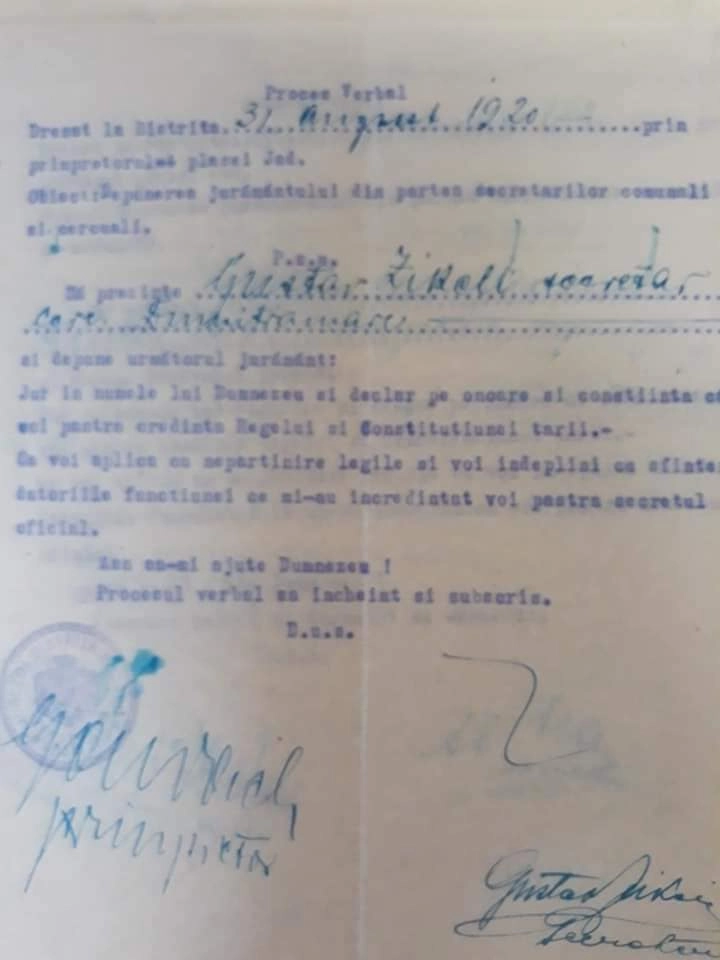 Proces Verbal
Dresat la Bistrita. 31 August 1920 prin
primpretorul placei Jad.
Obiect: Depunerea jurământului din partea secretarilor comunali
si cercuali.
P.s.s.
Să prezinte Gustav Zikeli secretar
cerc.
si depune următorul jurământ:
Jur in numele lui Dumnezeu si declar pe onoare si constiinta că
voi pastra credinta Regelui si Constitutiunei tarii.-
Ca voi aplica cu nepartinire legile si voi indeplini cu sfinte
datoriile functiunei ce mi-au incredintat voi pastra secretul
oficial.
Asa sa-mi ajute Dumnezeu !
Procesul verbal sa incheiat si subscris.
D.u.s.
primpretor
Gustav Zikeli